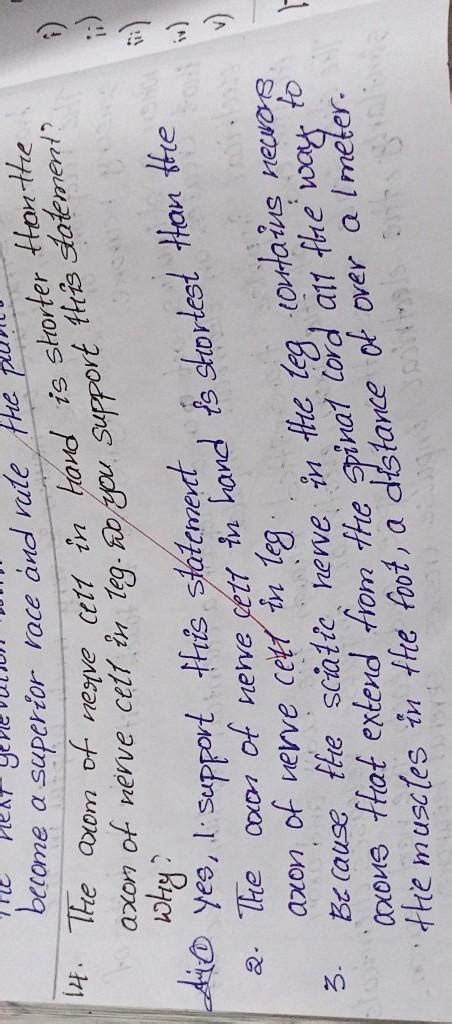 become a superior race and rule the
14. The axom of nerve cell in hand is shorter than the
axom of nerve cell in leg. Do you support this statement?
Why?
Ans ① Yes, I support this statement
2. The axon of nerve cell in hand is shortest than the
axon of nerve cell in leg.
3. Because the sciatic nerve in the leg contains neurons
axons that extend from the spinal cord all the way to
the muscles in the foot, a distance of over a 1 meter.
i)
ii)
iii)
iv)
v)